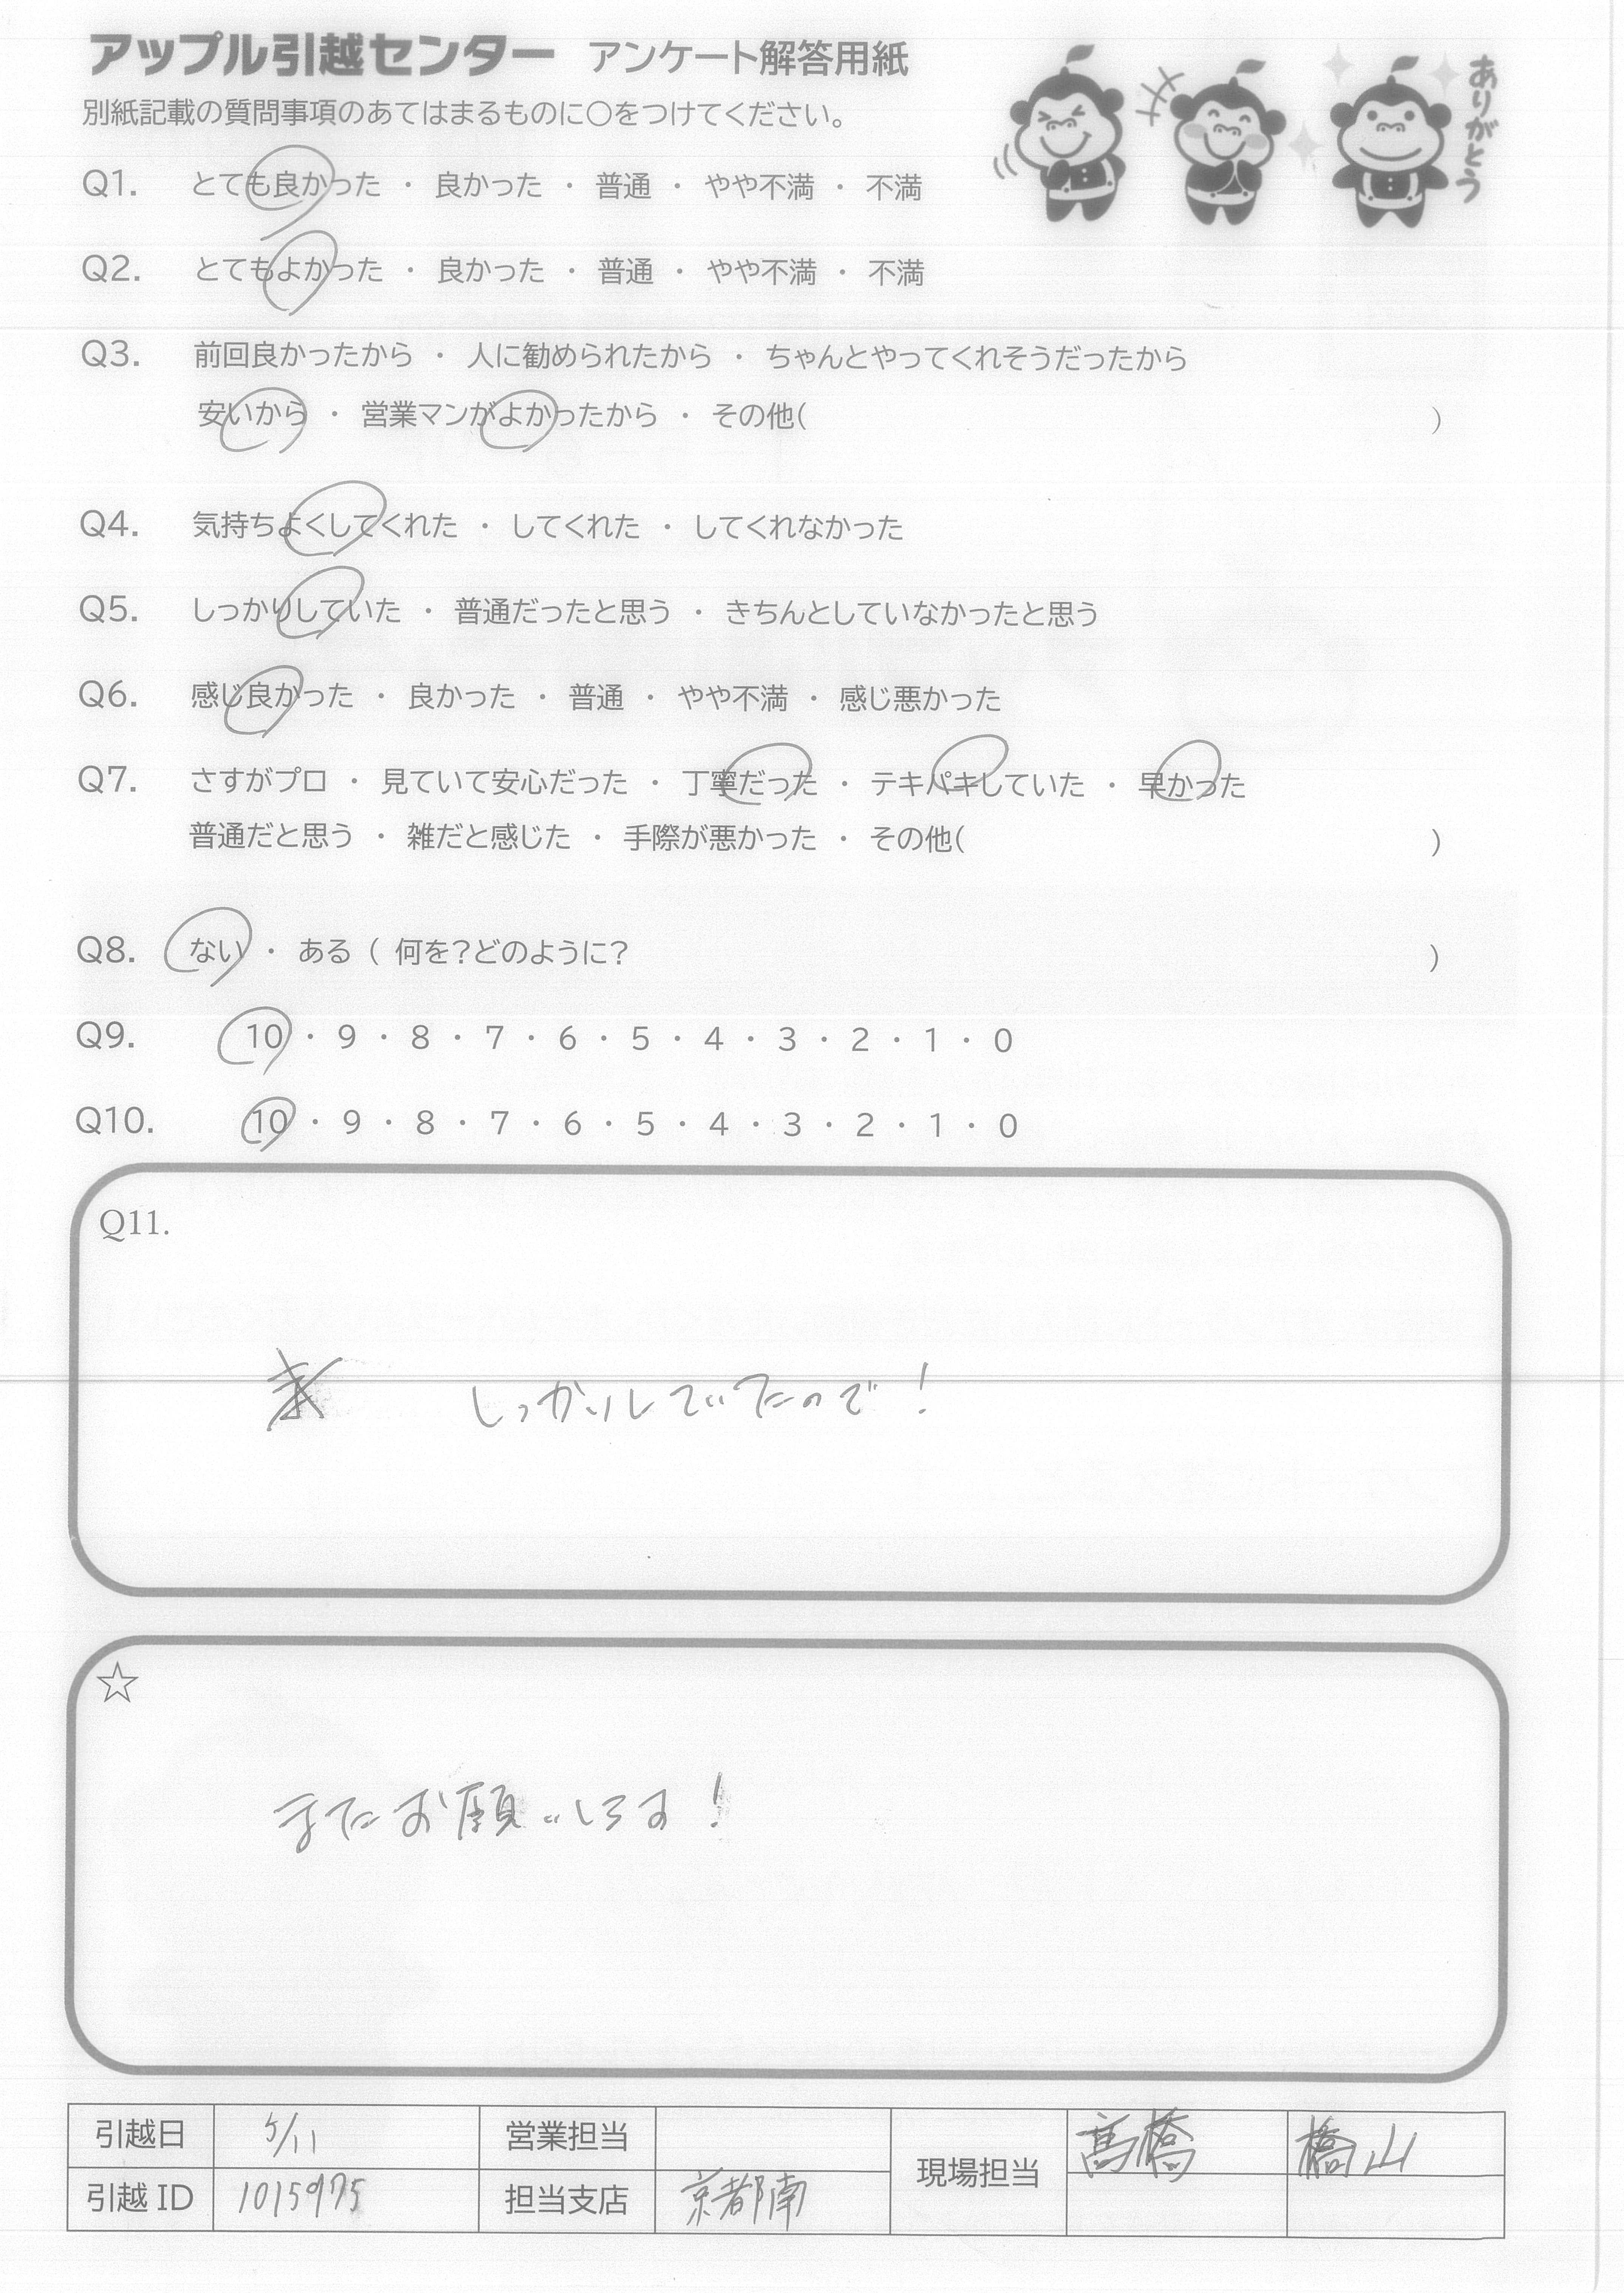 アップル引越センター アンケート解答用紙
ありがとう
別紙記載の質問事項のあてはまるものに○をつけてください。
Q1. とても良かった ・ 良かった ・ 普通 ・ やや不満 ・ 不満
Q2. とてもよかった ・ 良かった ・ 普通 ・ やや不満 ・ 不満
Q3. 前回良かったから ・ 人に勧められたから ・ ちゃんとやってくれそうだったから
安いから ・ 営業マンがよかったから ・ その他( )
Q4. 気持ちよくしてくれた ・ してくれた ・ してくれなかった
Q5. しっかりしていた ・ 普通だったと思う ・ きちんとしていなかったと思う
Q6. 感じ良かった ・ 良かった ・ 普通 ・ やや不満 ・ 感じ悪かった
Q7. さすがプロ ・ 見ていて安心だった ・ 丁寧だった ・ テキパキしていた ・ 早かった
普通だと思う ・ 雑だと感じた ・ 手際が悪かった ・ その他( )
Q8. ない ・ ある ( 何を?どのように? )
Q9. 10 ・ 9 ・ 8 ・ 7 ・ 6 ・ 5 ・ 4 ・ 3 ・ 2 ・ 1 ・ 0
Q10. 10 ・ 9 ・ 8 ・ 7 ・ 6 ・ 5 ・ 4 ・ 3 ・ 2 ・ 1 ・ 0
Q11.
しっかりしていたので!
☆
またお願いします!
引越日 5/11 営業担当 現場担当 髙橋 橋山
引越 ID 1015975 担当支店 京都南